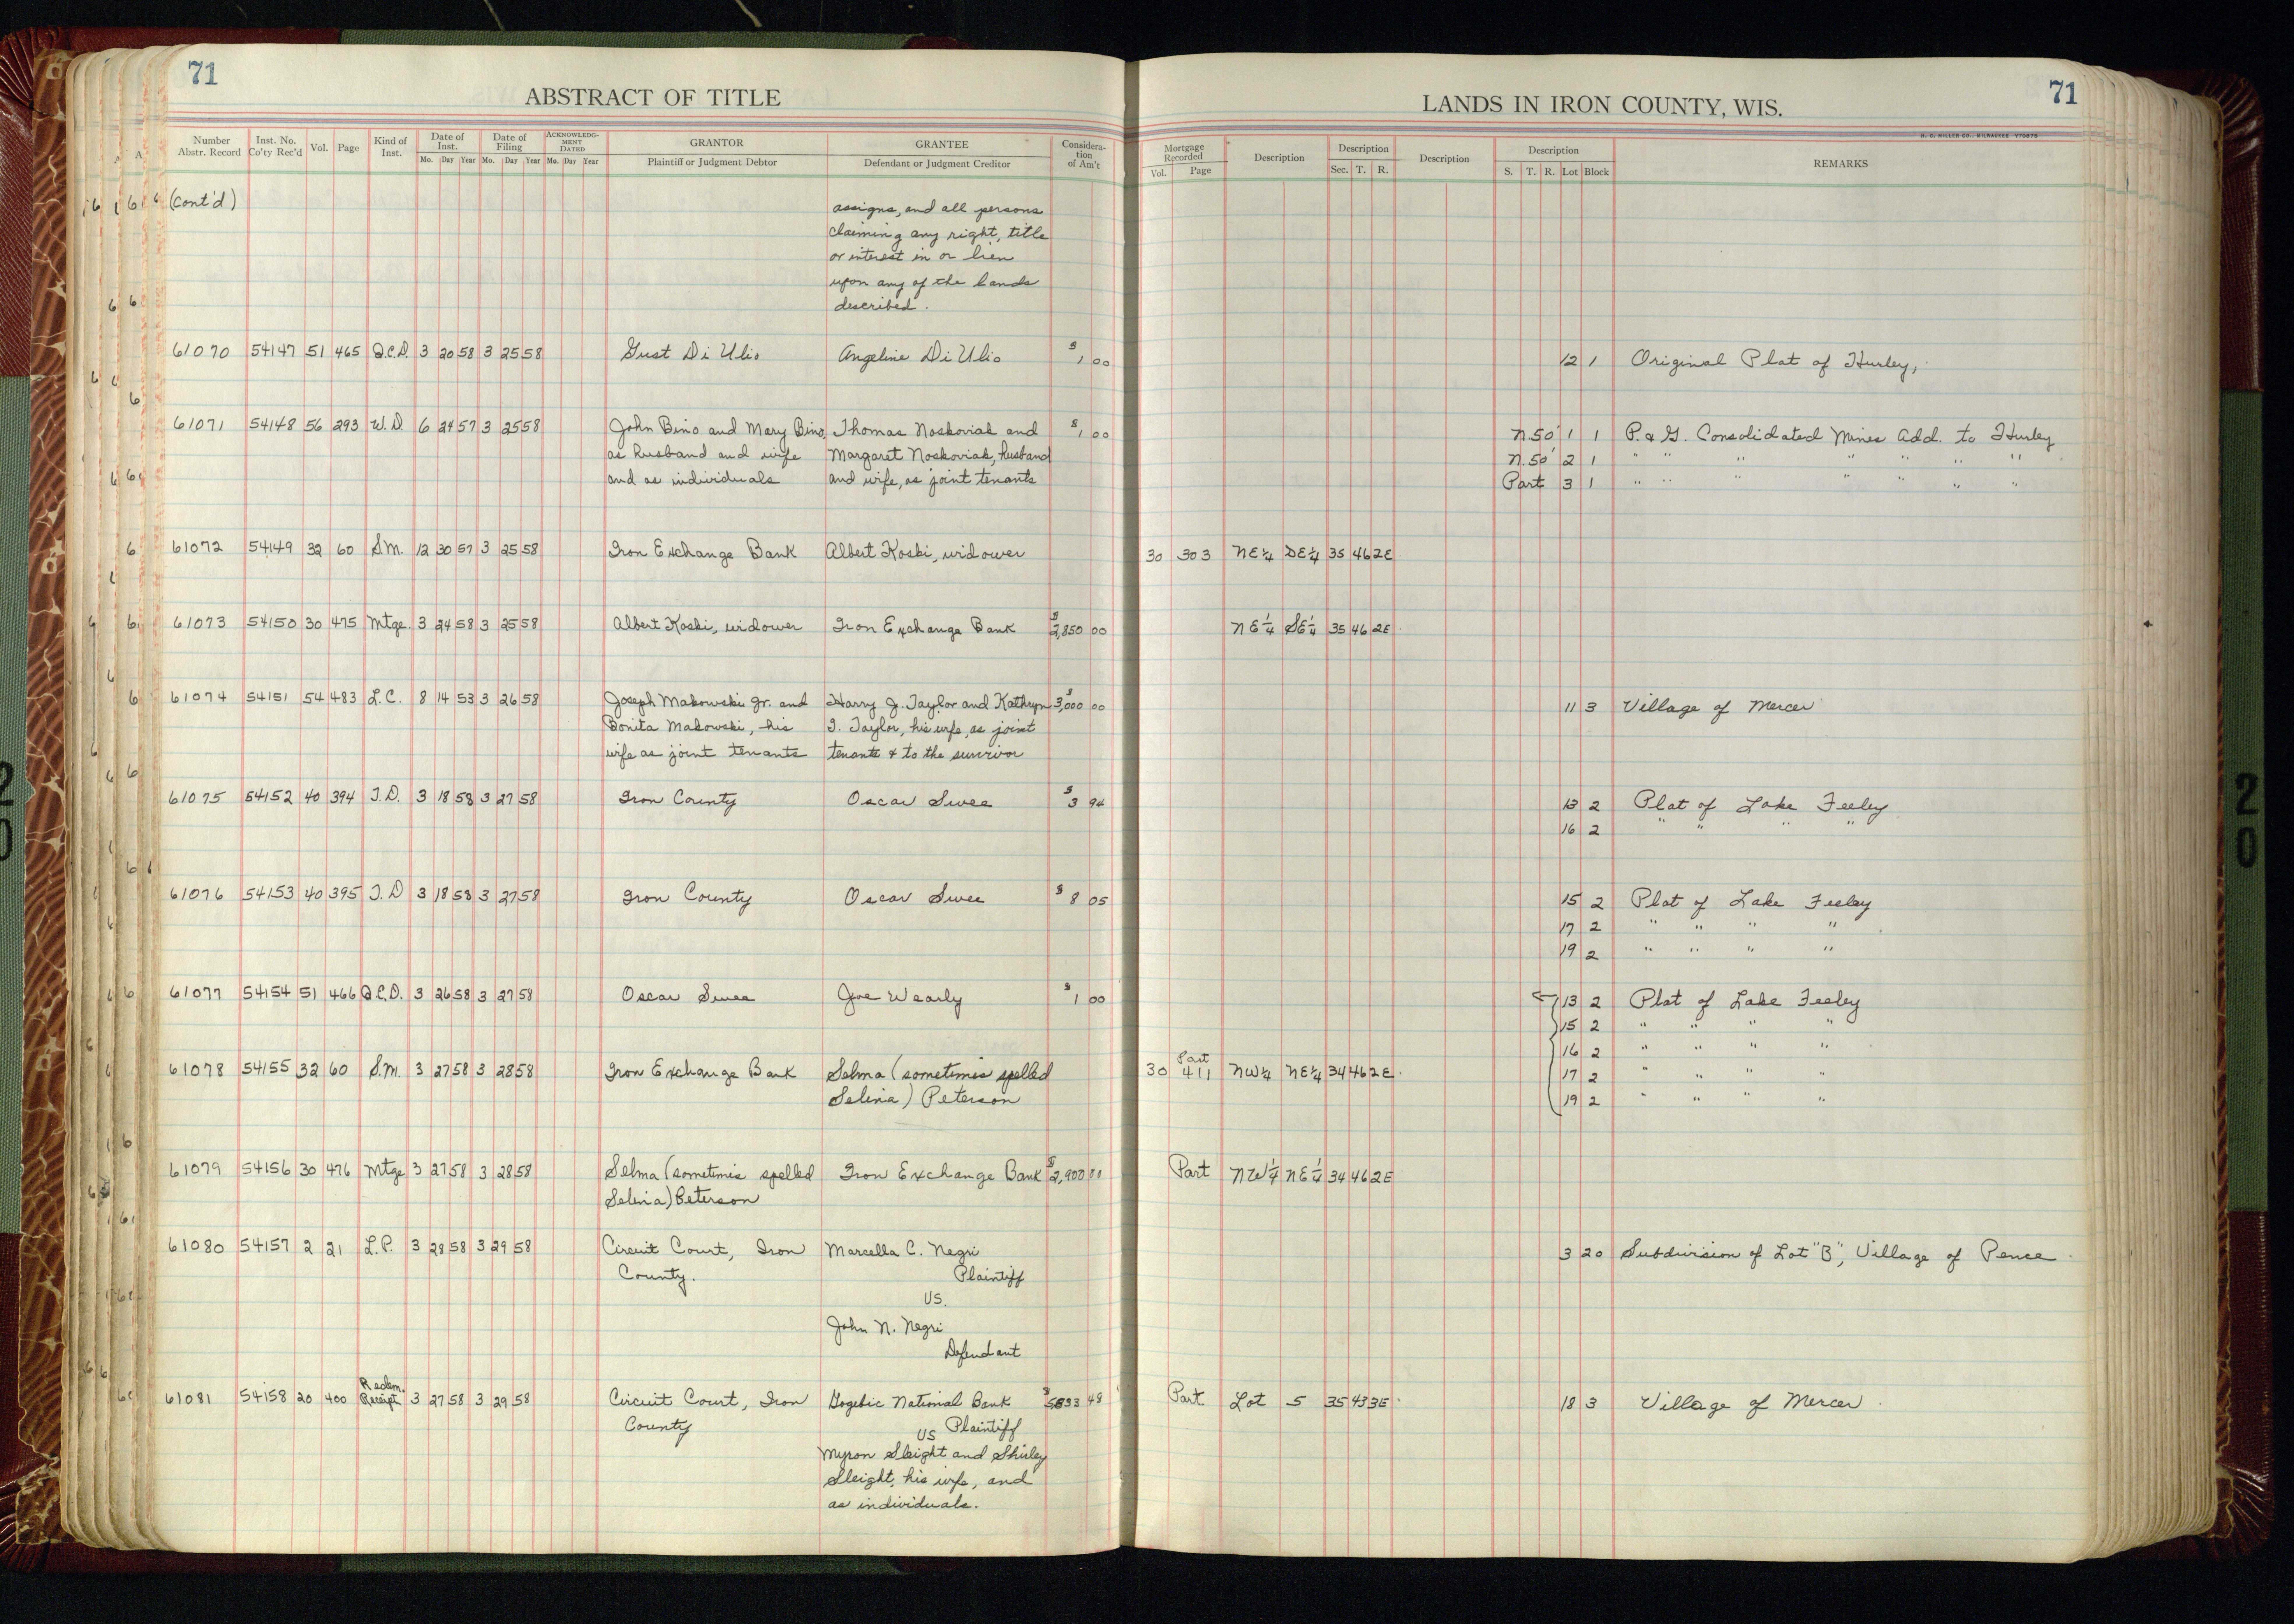 71
ABSTRACT OF TITLE
Number Abstr. Record
Inst. No. Co'ty Rec'd
Vol.
Page
Kind of Inst.
Date of Inst.
Mo. Day Year
Date of Filing
Mo. Day Year
ACKNOWLEDG-MENT DATED
Mo. Day Year
GRANTOR
Plaintiff or Judgment Debtor
GRANTEE
Defendant or Judgment Creditor
Considera-tion of Am't
(Cont'd)
assigns, and all persons
claiming any right, title
or interest in or lien
upon any of the lands
described.
61070 54147 51 465 Q.C.D. 3 20 58 3 25 58 Gust Di Ulio Angeline Di Ulio $1 00
61071 54148 56 293 W.D. 6 24 57 3 25 58 John Bino and Mary Bino, Thomas Noskoviak and $1 00
as husband and wife Margaret Noskoviak, husband
and as individuals and wife, as joint tenants
61072 54149 32 60 S.M. 12 30 57 3 25 58 Iron Exchange Bank Albert Koski, widower
61073 54150 30 475 Mtge. 3 24 58 3 25 58 Albert Koski, widower Iron Exchange Bank $2,850 00
61074 54151 54 483 L.C. 8 14 53 3 26 58 Joseph Makowski Jr. and Harry J. Taylor and Kathryn $3,000 00
Bonita Makowski, his I. Taylor, his wife, as joint
wife as joint tenants tenants & to the survivor
61075 54152 40 394 T.D. 3 18 58 3 27 58 Iron County Oscar Swee $3 94
61076 54153 40 395 T.D 3 18 58 3 27 58 Iron County Oscar Swee $8 05
61077 54154 51 466 Q.C.D. 3 26 58 3 27 58 Oscar Swee Joe Wearly $1 00
61078 54155 32 60 S.M. 3 27 58 3 28 58 Iron Exchange Bank Selma (sometimes spelled
Selina) Peterson
61079 54156 30 476 Mtge 3 27 58 3 28 58 Selma (sometimes spelled Iron Exchange Bank $2,900 00
Selina) Peterson
61080 54157 2 21 L.P. 3 28 58 3 29 58 Circuit Court, Iron Marcella C. Negri
County. Plaintiff
vs.
John N. Negri
Defendant
61081 54158 20 400 Redem. Receipt 3 27 58 3 29 58 Circuit Court, Iron Gogebic National Bank 48
County Plaintiff
vs
Myron Sleight and Shirley
Sleight, his wife, and
as individuals.
71
LANDS IN IRON COUNTY, WIS.
H. C. MILLER CO., MILWAUKEE
Mortgage Recorded
Vol. Page
Description
Description
Sec. T. R.
Description
Description
S. T. R. Lot Block
REMARKS
12 1 Original Plat of Hurley,
N.50' 1 1 P. & G. Consolidated Mines Add. to Hurley
N.50' 2 1 " " " " " " "
Part 3 1 " " " " " " "
30 303 NE¼ SE¼ 35 46 2E
NE¼ SE¼ 35 46 2E
11 3 Village of Mercer
13 2 Plat of Lake Feeley
16 2 " " " "
15 2 Plat of Lake Feeley
17 2 " " " "
19 2 " " " "
13 2 Plat of Lake Feeley
15 2 " " " "
16 2 " " " "
30 Part 411 NW¼ NE¼ 34 46 2E 17 2 " " " "
19 2 " " " "
Part NW¼ NE¼ 34 46 2E
3 20 Subdivision of Lot "B", Village of Pence
Part Lot 5 35 43 3E 18 3 Village of Mercer
20